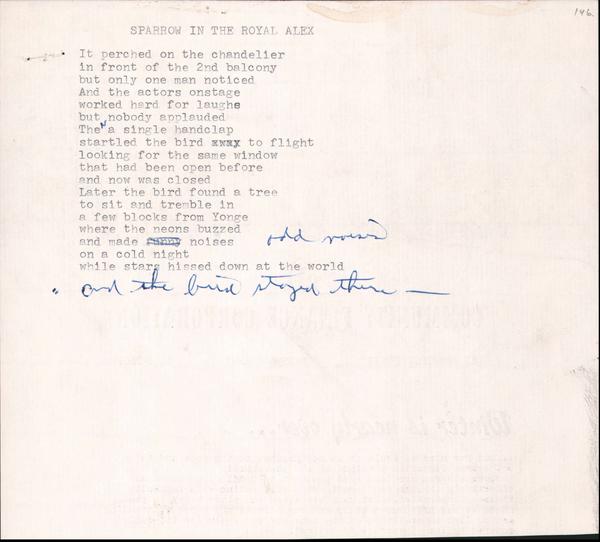 146.
SPARROW IN THE ROYAL ALEX
It perched on the chandelier
in front of the 2nd balcony
but only one man noticed
And the actors onstage
worked hard for laughs
but nobody applauded
The n a single handclap
startled the bird xwxy to flight
looking for the same window
that had been open before
and now was closed
Later the bird found a tree
to sit and tremble in
a few blocks from Yonge
where the neons buzzed
and made funny noises odd noises
on a cold night
while stars hissed down at the world
and the bird stayed there —
COMMUNITY FINANCE CORPORATION
Winter is nearly over...